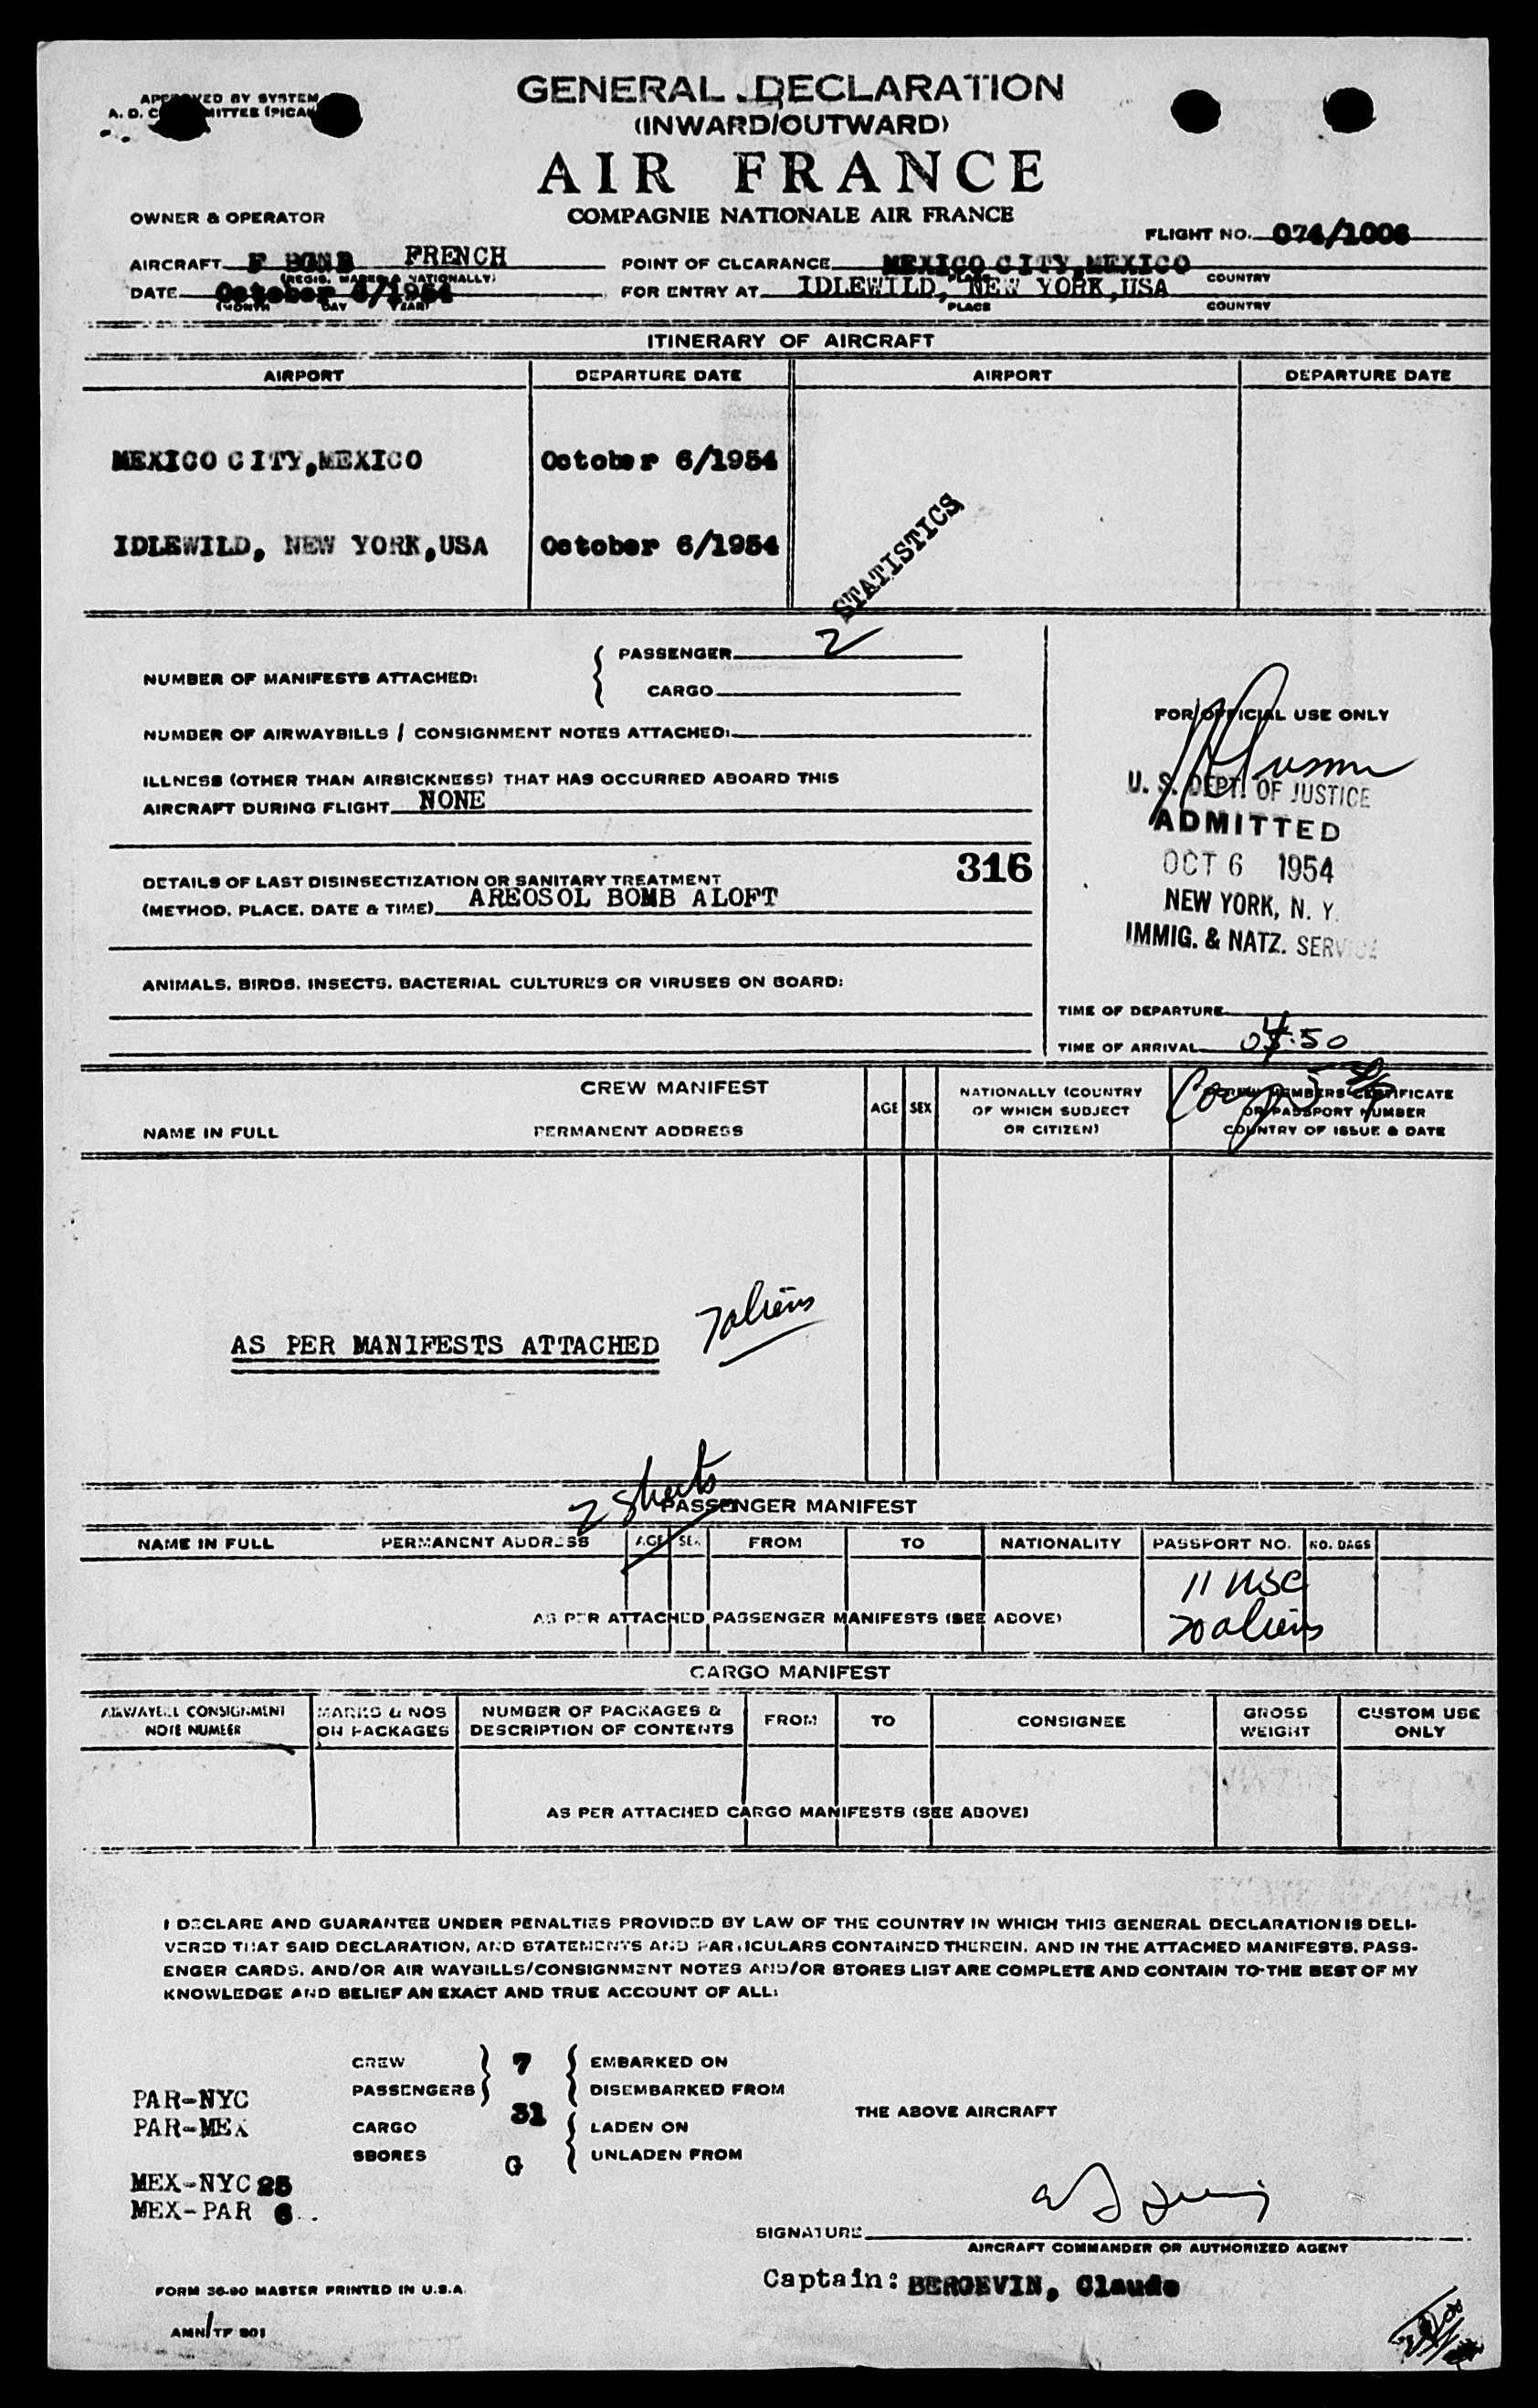 GENERAL DECLARATION
(INWARD/OUTWARD)
AIR FRANCE
COMPAGNIE NATIONALE AIR FRANCE
OWNER & OPERATOR
FLIGHT NO. 074/1006
AIRCRAFT F FRENCH
POINT OF CLEARANCE MEXICO CITY, MEXICO
(REGIS. MARKS & NATIONALLY) COUNTRY
DATE October 6/1954
FOR ENTRY AT IDLEWILD, NEW YORK, USA
(MONTH DAY YEAR) PLACE COUNTRY
ITINERARY OF AIRCRAFT
AIRPORT DEPARTURE DATE AIRPORT DEPARTURE DATE
MEXICO CITY, MEXICO October 6/1954
IDLEWILD, NEW YORK, USA October 6/1954
STATISTICS
PASSENGER 2
NUMBER OF MANIFESTS ATTACHED:
CARGO
NUMBER OF AIRWAYBILLS / CONSIGNMENT NOTES ATTACHED:
ILLNESS (OTHER THAN AIRSICKNESS) THAT HAS OCCURRED ABOARD THIS
AIRCRAFT DURING FLIGHT NONE
316
DETAILS OF LAST DISINSECTIZATION OR SANITARY TREATMENT
(METHOD, PLACE, DATE & TIME) AREOSOL BOMB ALOFT
ANIMALS, BIRDS, INSECTS, BACTERIAL CULTURES OR VIRUSES ON BOARD:
FOR OFFICIAL USE ONLY
U. S. DEPT. OF JUSTICE
ADMITTED
OCT 6 1954
NEW YORK, N. Y.
IMMIG. & NATZ. SERVICE
TIME OF DEPARTURE
TIME OF ARRIVAL 04:50
CREW MANIFEST
NAME IN FULL PERMANENT ADDRESS
AGE SEX
NATIONALLY (COUNTRY
OF WHICH SUBJECT
OR CITIZEN)
CREW MEMBERS CERTIFICATE
OR PASSPORT NUMBER
COUNTRY OF ISSUE & DATE
AS PER MANIFESTS ATTACHED
7 aliens
2 sheets
PASSENGER MANIFEST
NAME IN FULL PERMANENT ADDRESS AGE SEX FROM TO NATIONALITY PASSPORT NO. NO. BAGS
11 USC
20 aliens
AS PER ATTACHED PASSENGER MANIFESTS (SEE ABOVE)
CARGO MANIFEST
AIRWAYBILL CONSIGNMENT
NOTE NUMBER
MARKS & NOS
ON PACKAGES
NUMBER OF PACKAGES &
DESCRIPTION OF CONTENTS
FROM TO CONSIGNEE
GROSS
WEIGHT
CUSTOM USE
ONLY
AS PER ATTACHED CARGO MANIFESTS (SEE ABOVE)
I DECLARE AND GUARANTEE UNDER PENALTIES PROVIDED BY LAW OF THE COUNTRY IN WHICH THIS GENERAL DECLARATION IS DELI-
VERED THAT SAID DECLARATION, AND STATEMENTS AND PARTICULARS CONTAINED THEREIN, AND IN THE ATTACHED MANIFESTS, PASS-
ENGER CARDS, AND/OR AIR WAYBILLS/CONSIGNMENT NOTES AND/OR STORES LIST ARE COMPLETE AND CONTAIN TO THE BEST OF MY
KNOWLEDGE AND BELIEF AN EXACT AND TRUE ACCOUNT OF ALL:
CREW 7 EMBARKED ON
PASSENGERS DISEMBARKED FROM
31
CARGO LADEN ON
SBORES G UNLADEN FROM
THE ABOVE AIRCRAFT
PAR-NYC
PAR-MEX
MEX-NYC 25
MEX-PAR 6
SIGNATURE
AIRCRAFT COMMANDER OR AUTHORIZED AGENT
Captain: BERGEVIN, Claude
FORM 36-90 MASTER PRINTED IN U.S.A.
AMN/TF 801